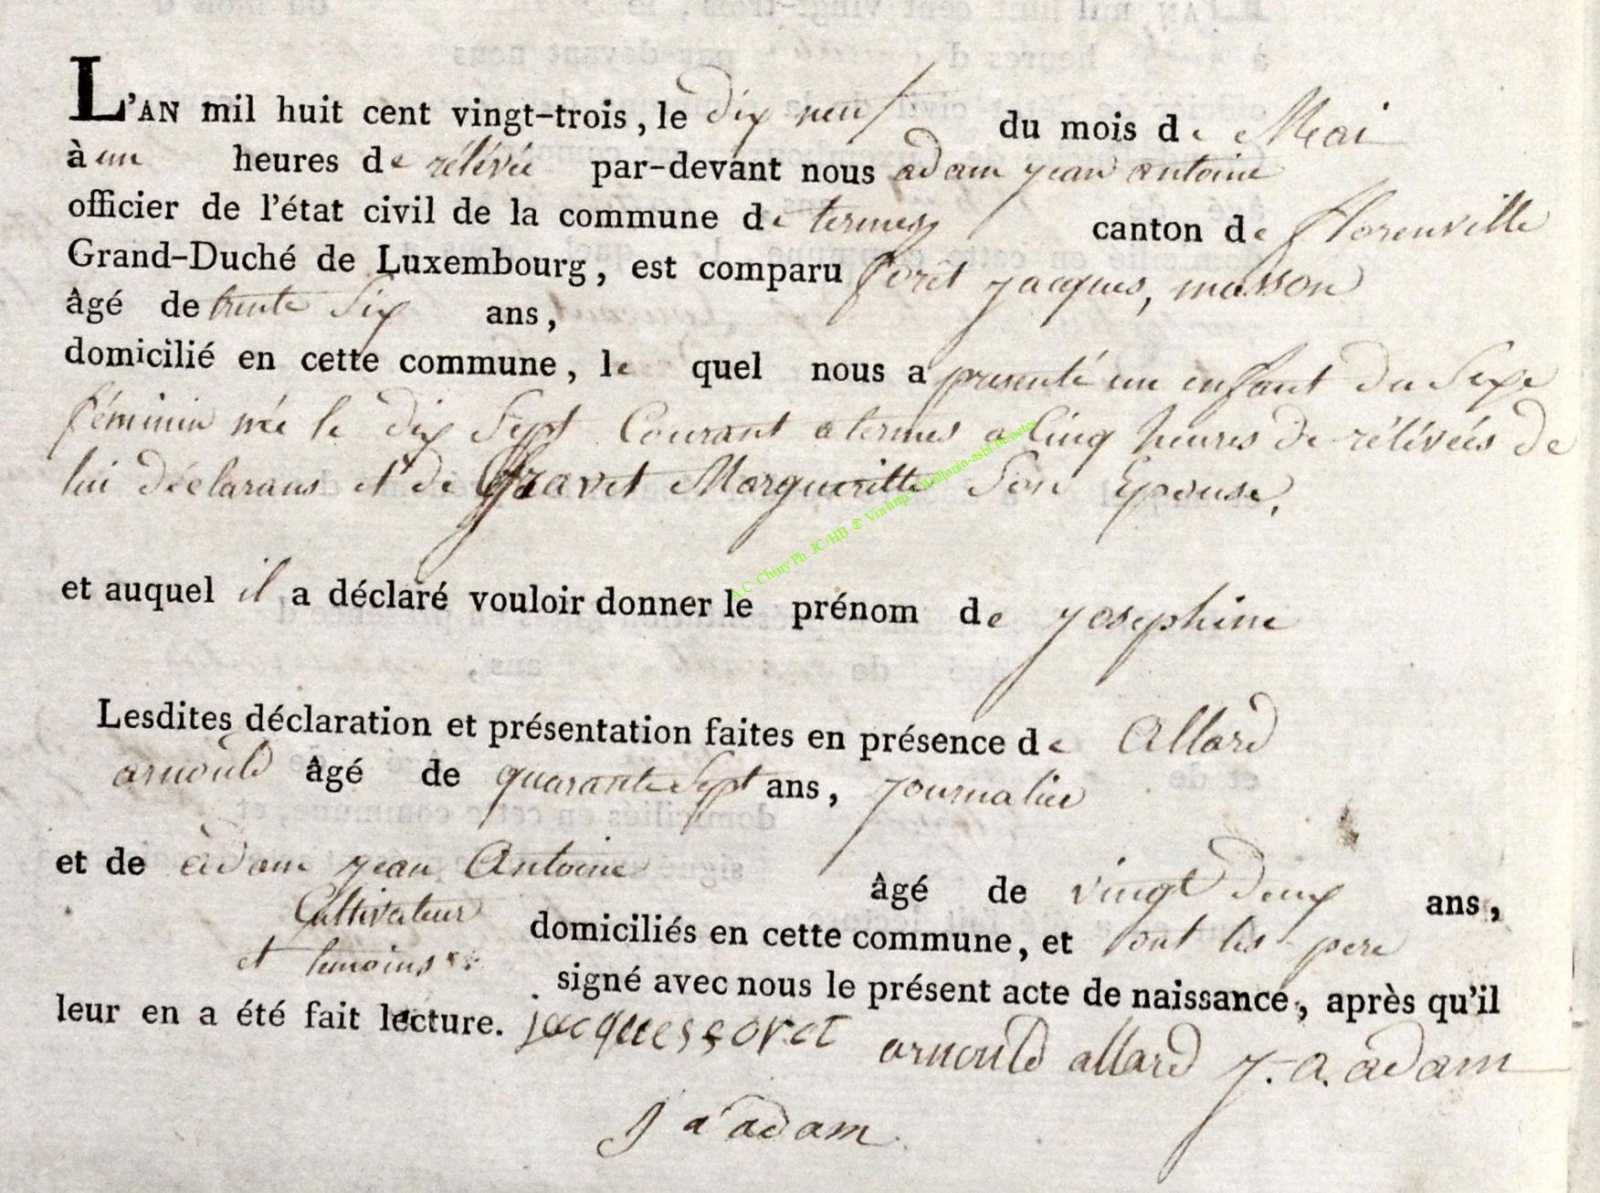 L'AN mil huit cent vingt-trois, le dix neuf du mois de Mai
à un heures de rélévée par-devant nous adam jean antoine
officier de l'état civil de la commune de termes canton de florenville
Grand-Duché de Luxembourg, est comparu foret jacques, masson
âgé de trente Six ans,
domicilié en cette commune, le quel nous a presenté un enfant du Sexe
féminin née le dix Sept Courant a termes a Cinq heures de rélévées de
lui déclarans et de gravet Margueritte Son Epouse,
et auquel il a déclaré vouloir donner le prénom de josephine
Lesdites déclaration et présentation faites en présence de Allard
arnould âgé de quarante Sept ans, journalier
et de adam jean Antoine âgé de vingt deux ans,
Cultivateur domiciliés en cette commune, et ont les pere
et temoins signé avec nous le présent acte de naissance, après qu'il
leur en a été fait lecture. jacques foret arnould allard j. a. adam
j a adam